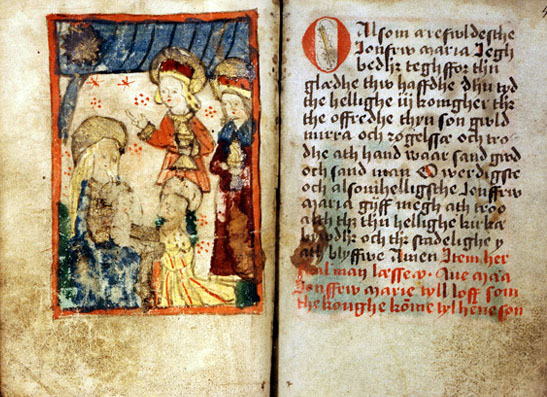 O Alsom arefwldesthe
Jonfrw maria Jegh
bedhr teghffor thn
glædhe thw haffdhe dhn tyd
the hellighe iij konigher thr
the offredhe thyn son gwld
mirra och rögelssæ och tro
dhe ath hand waar sand gwd
och sand man O werdigste
och alsomhelligsthe Jonffrw
maria gijff megh ath troo
alth thz thn hellighe kirka
bywdhr och thr stadelighe y
ath blyffwe Amen Item her
skal man læsse v Aue ma'a
Jonffrw marie tyll loff som
the koughe kōme tyl hene son